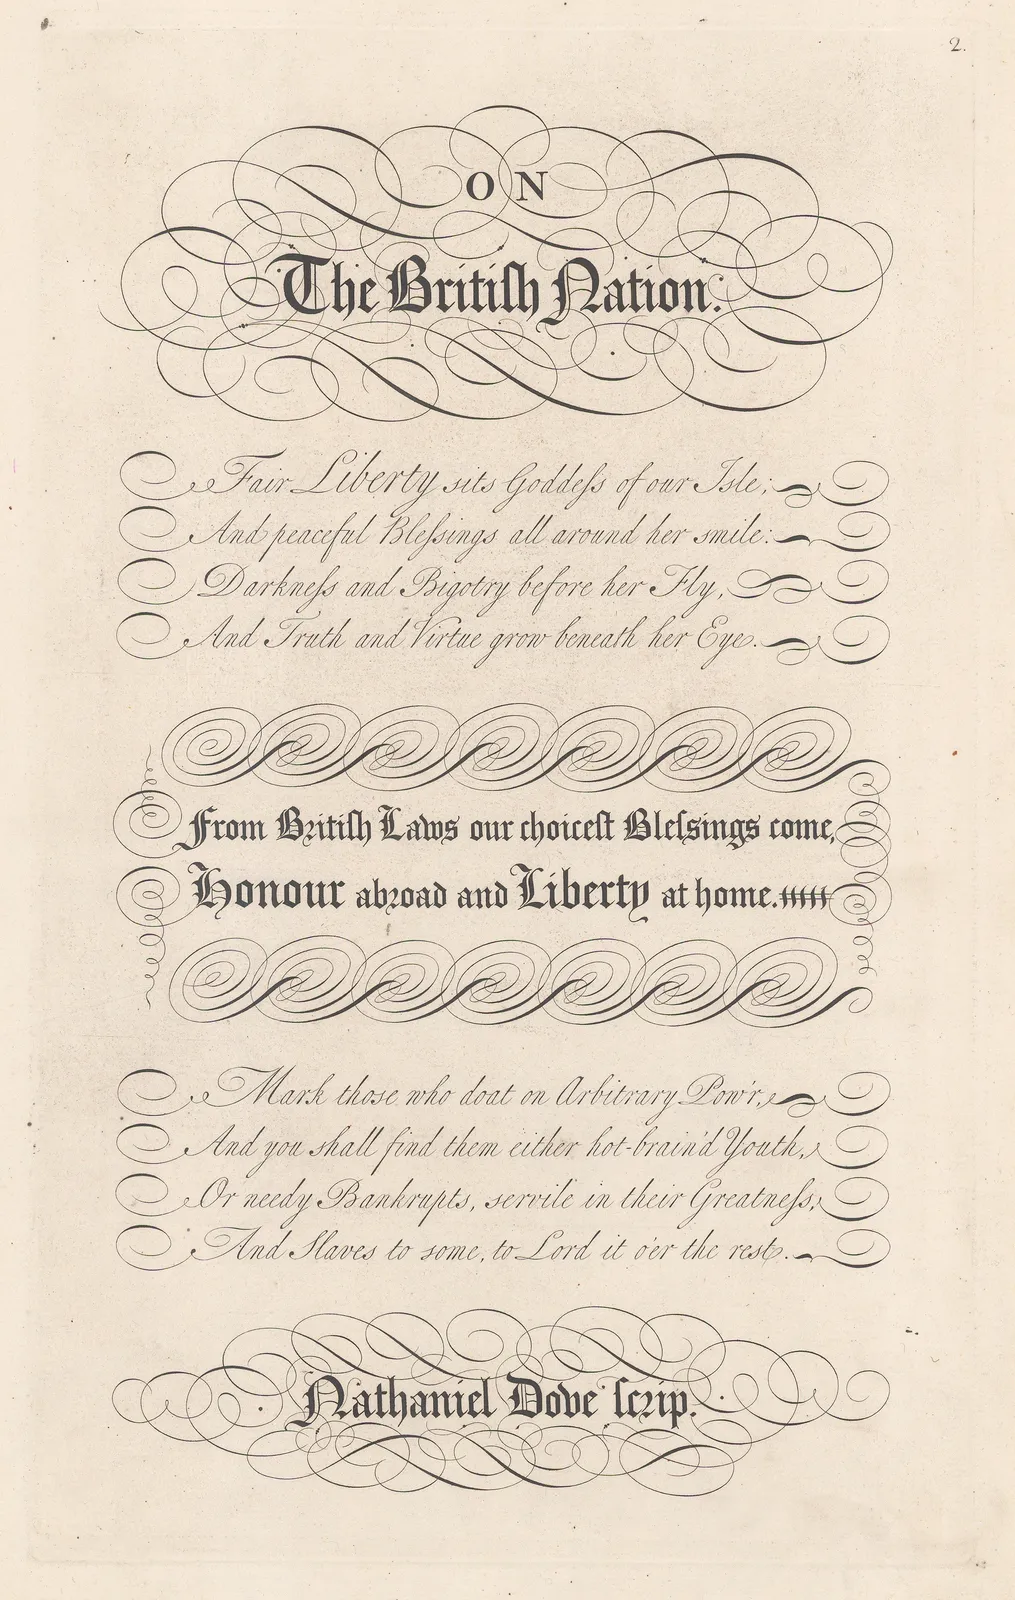 2.
ON
The Britiſh Nation.
Fair Liberty sits Goddeſs of our Isle;
And peaceful Bleſsings all around her smile:
Darkneſs and Bigotry before her Fly,
And Truth and Virtue grow beneath her Eye.
From Britiſh Laws our choiceſt Bleſsings come,
Honour abroad and Liberty at home.
Mark those who doat on Arbitrary Pow'r,
And you shall find them either hot-brain'd Youth,
Or needy Bankrupts, servile in their Greatneſs,
And Slaves to some, to Lord it o'er the rest.
Nathaniel Dove ſcrip.